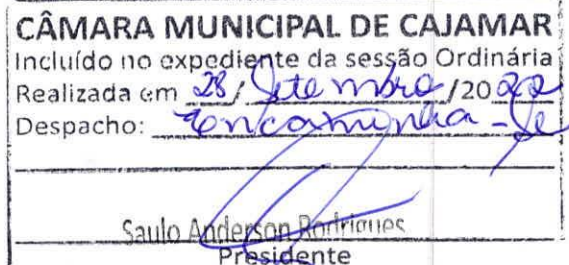 CÂMARA MUNICIPAL DE CAJAMAR
Incluído no expediente da sessão Ordinária
Realizada em 28/ Setembro /2022
Despacho: Encaminha-se
Saulo Anderson Rodrigues
Presidente